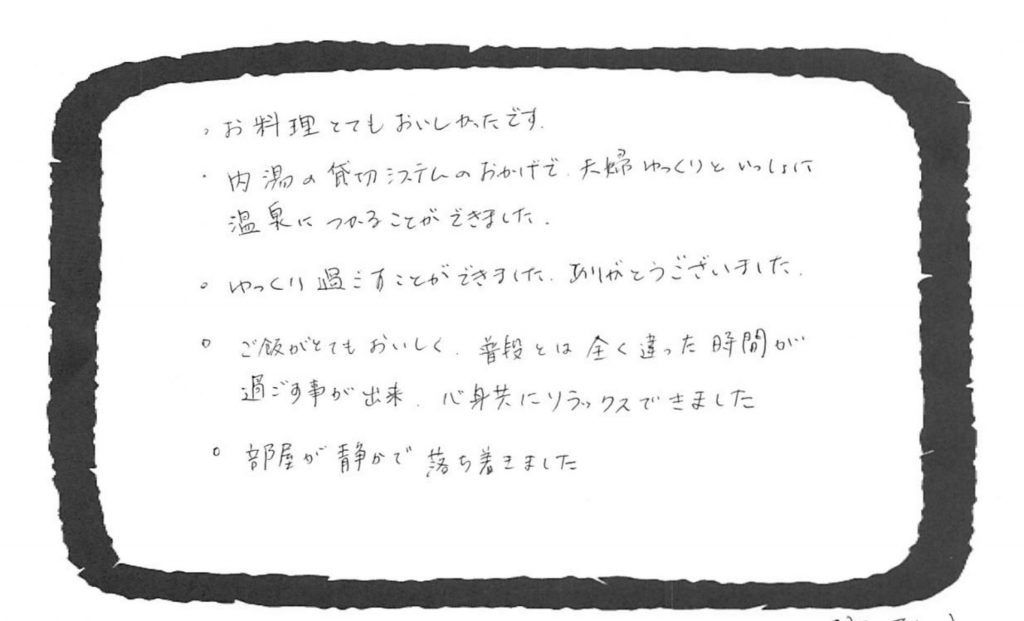 ・お料理とてもおいしかったです.
・内湯の貸切システムのおかげで.夫婦ゆっくりといっしょに
温泉につかることができました.
。ゆっくり過ごすことができました.ありがとうございました.
。ご飯がとてもおいしく.普段とは全く違った時間が
過ごす事が出来.心身共にリラックスできました
。部屋が静かで落ち着きました